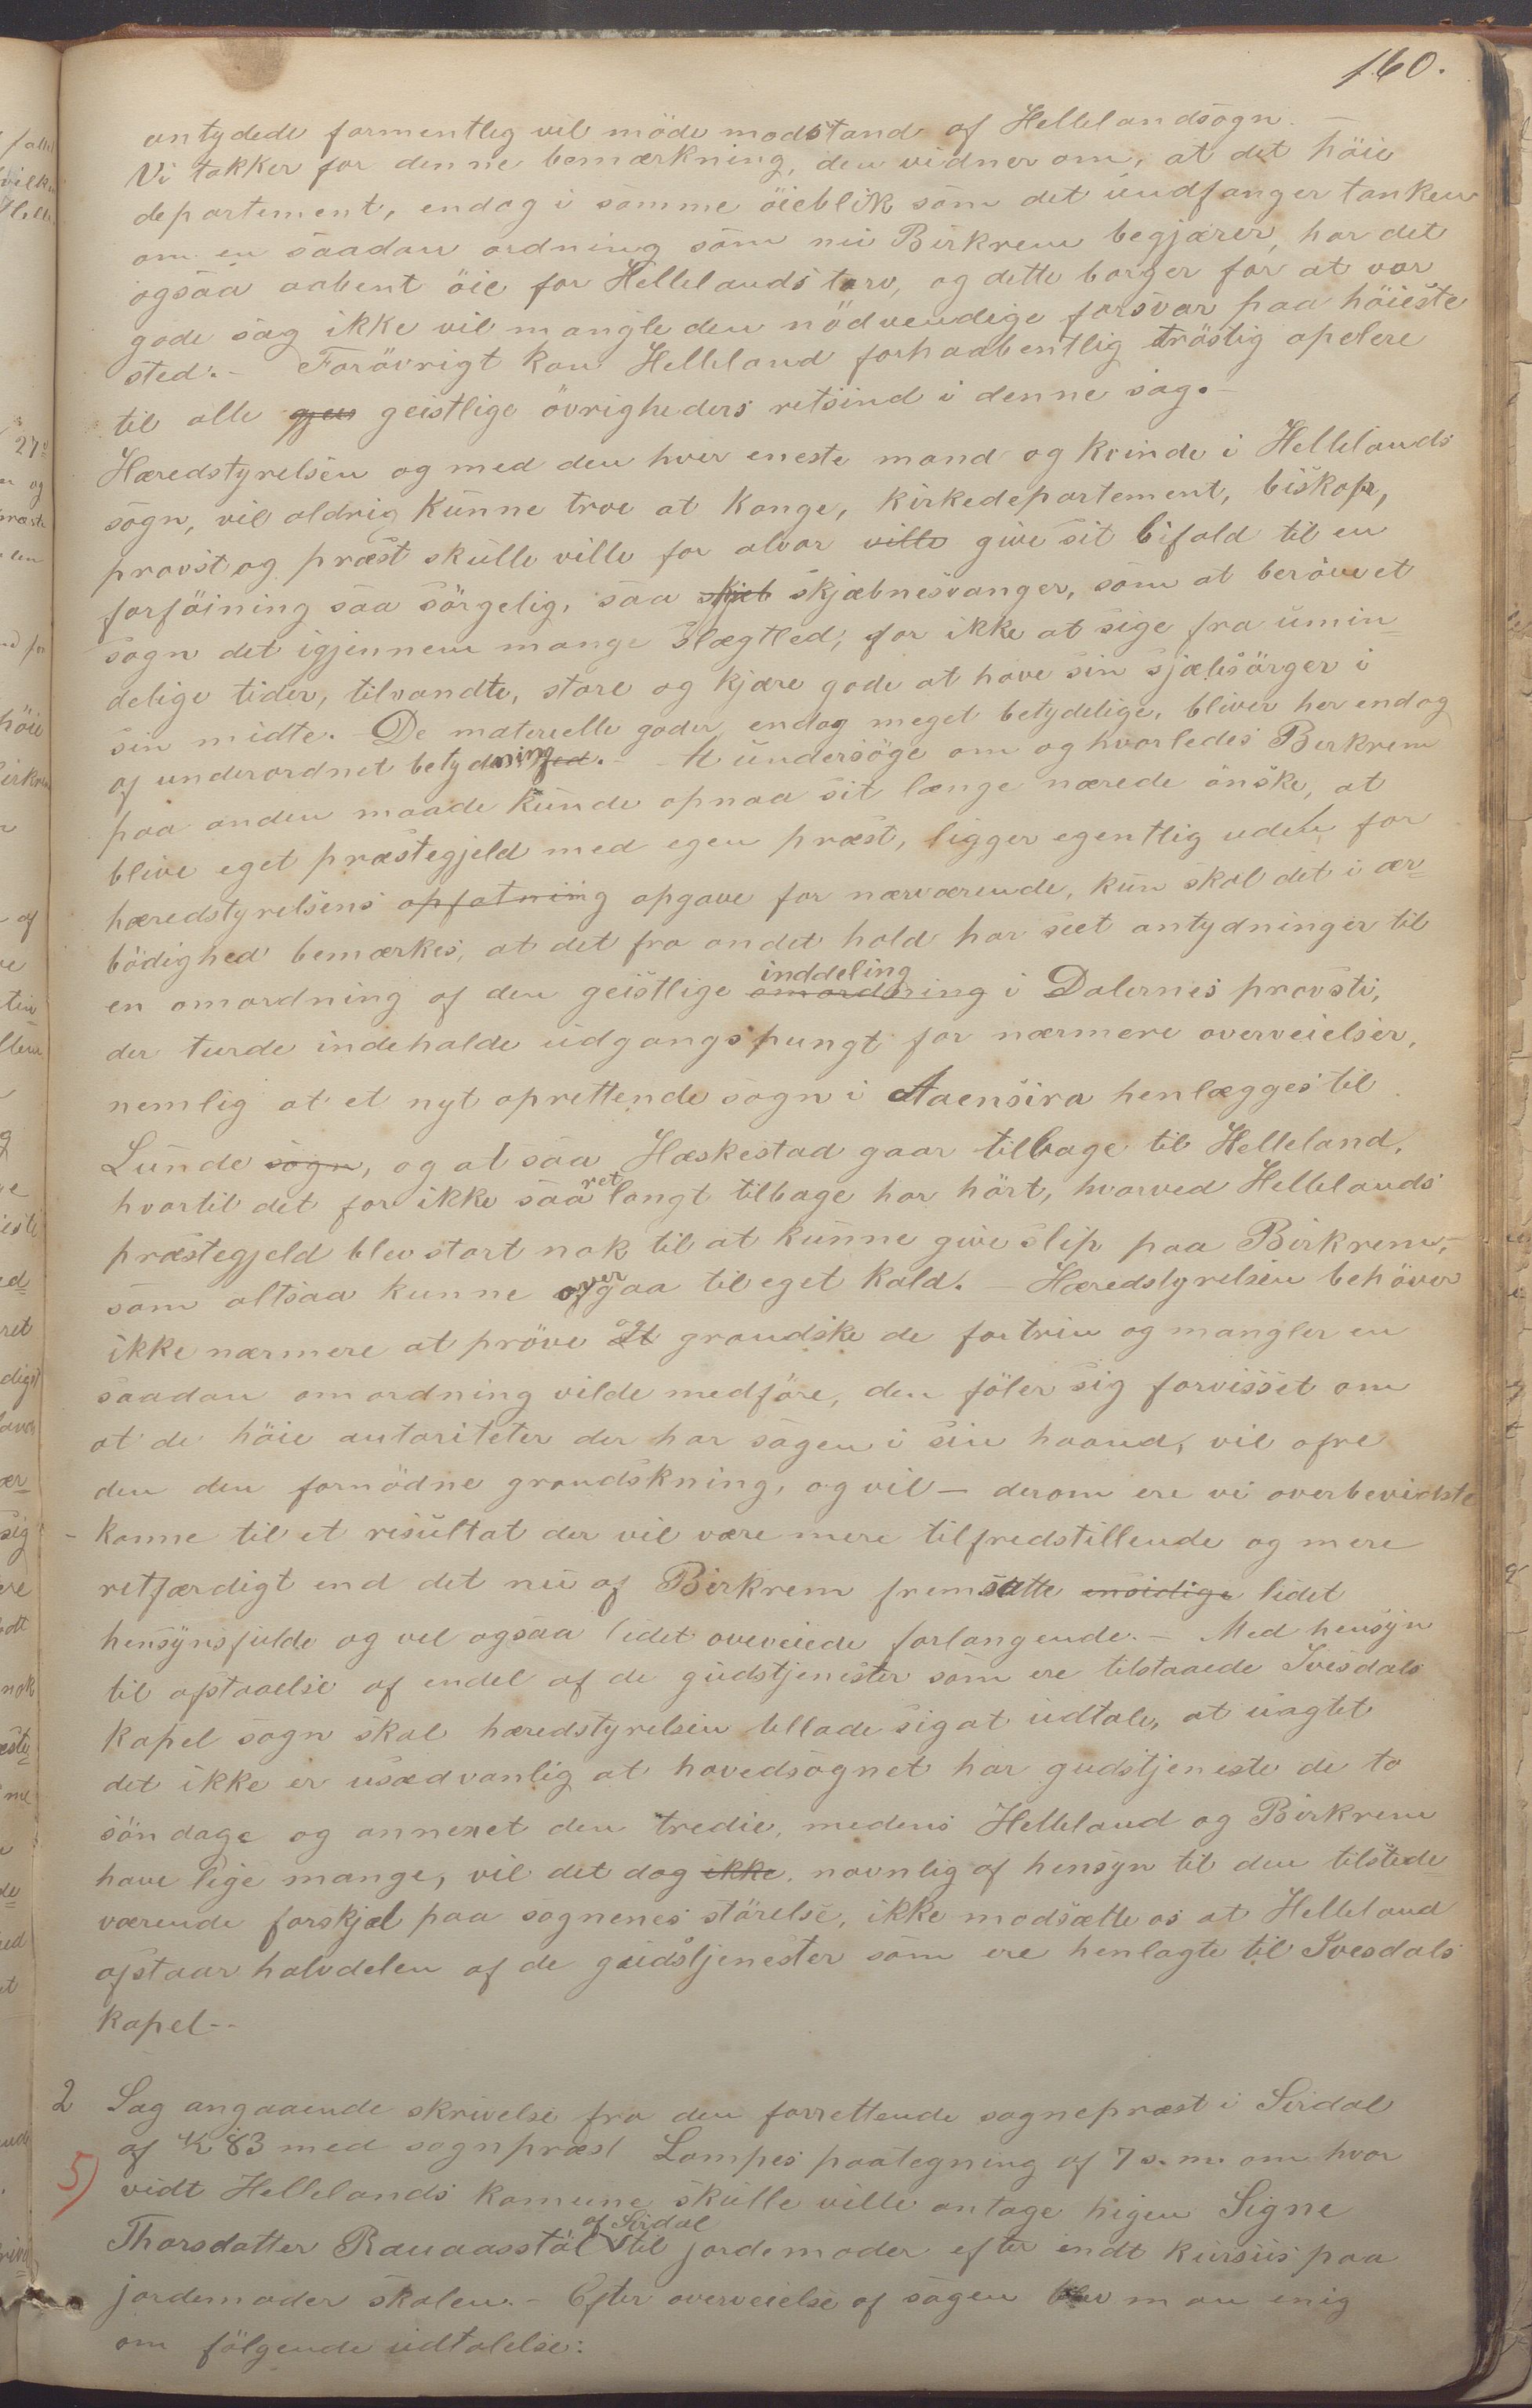 160.
antydede formentlig vil möde modstand af Hellelandsogn. —
Vi takker for denne bemærkning, den vidner om, at det höie
departement, endog i samme öieblik som det undfanger tanken
om en saadan ordning som nu Birkrem begjærer, har det
ogsaa aabent öie for Hellelands tarv, og dette borger for at vor
gode sag ikke vil mangle den nödvendige forsvar paa höieste
sted. — Forövrigt kan Helleland forhaabentlig tröstig apelere
til alle gjeis geistlige övrigheders retsind i denne sag. —
Hæredstyrelsen og med den hver eneste mand og kvinde i Hellelands
sogn, vil aldrig kunne troe at Konge, kirkedepartement, biskop,
provst og præst skulle ville for alvor ville give sit bifald til en
forföining saa sörgelig, saa skjeb skjæbnesvanger, som at beröve et
sogn det igjennem mange slægtled, for ikke at sige fra umin-
delige tider, tilvandte, store og kjære gode at have sin sjælesörger i
sin midte. — De materielle goder, endog meget betydelige, bliver her endog
af underordnet betydning. — At undersöge om og hvorledes Berkrem
paa anden maade kunde opnaa sit længe nærede önske, at
blive eget præstegjeld med egen præst, ligger egentlig uden for
hæredstyrelsens opfatning opgave for nærværende, kun skal det i ær-
bödighed bemærkes, at det fra andet hold har seet antydninger til
en omordning af den geistlige omordning inddeling i Dalernes provsti,
der turde indeholde udgangspungt for nærmere overveielser,
nemlig at et nyt oprettende sogn i Aaensira henlægges til
Lunde sogn, og at saa Hæskestad gaar tilbage til Helleland,
hvortil det for ikke saa ret langt tilbage har hört, hvorved Hellelands
præstegjeld blev stort nok til at kunne give slip paa Birkrem,
som altsaa kunne overgaa til eget kald. — Hæredstyrelsen behöver
ikke nærmere at pröve og grandske de fortrin og mangler en
saadan omordning vilde medföre, den föler sig forvisset om
at de höie autoriteter der har sagen i sin haand, vil ofre
den den fornödne grandskning, og vil — derom ere vi overbeviste
- komme til et resultat der vil være mere tilfredstillende og mere
retfærdigt end det nu af Birkrem fremsatte ensidige lidet
hensynsfulde og vel ogsaa lidet oveveiede forlangende. — Med hensyn
til afstaaelse af endel af de gudstjenister som ere tilstaaede Ivesdals
kapel sogn skal hæredstyrelsen tillade sig at udtale, at uagtet
det ikke er usædvanlig at hovedsognet har gudstjeneste de to
söndage og annexet den tredie, medens Helleland og Birkrem
have lige mange, vil det dog ikke, navnlig af hensyn til den tilstede-
værende forskjel paa sognenes störelse, ikke modsætte os at Helleland
afstaar halvdelen af de gudstjenester som ere henlagte til Ivesdals
kapel. —
2 Sag angaaende skrivelse fra den forrettende sognepræst i Sirdal
af 83 med sognpræst Lampes paategning af 7 s. m. om hvor
5)
vidt Hellelands komune skulle ville antage pigen Signe
Thorsdatter Rauaasstöl af Sirdal til jordemoder efter endt kursus paa
jordemoder skolen. — Efter overveielse af sagen blev man enig
om fölgende udtalelse: